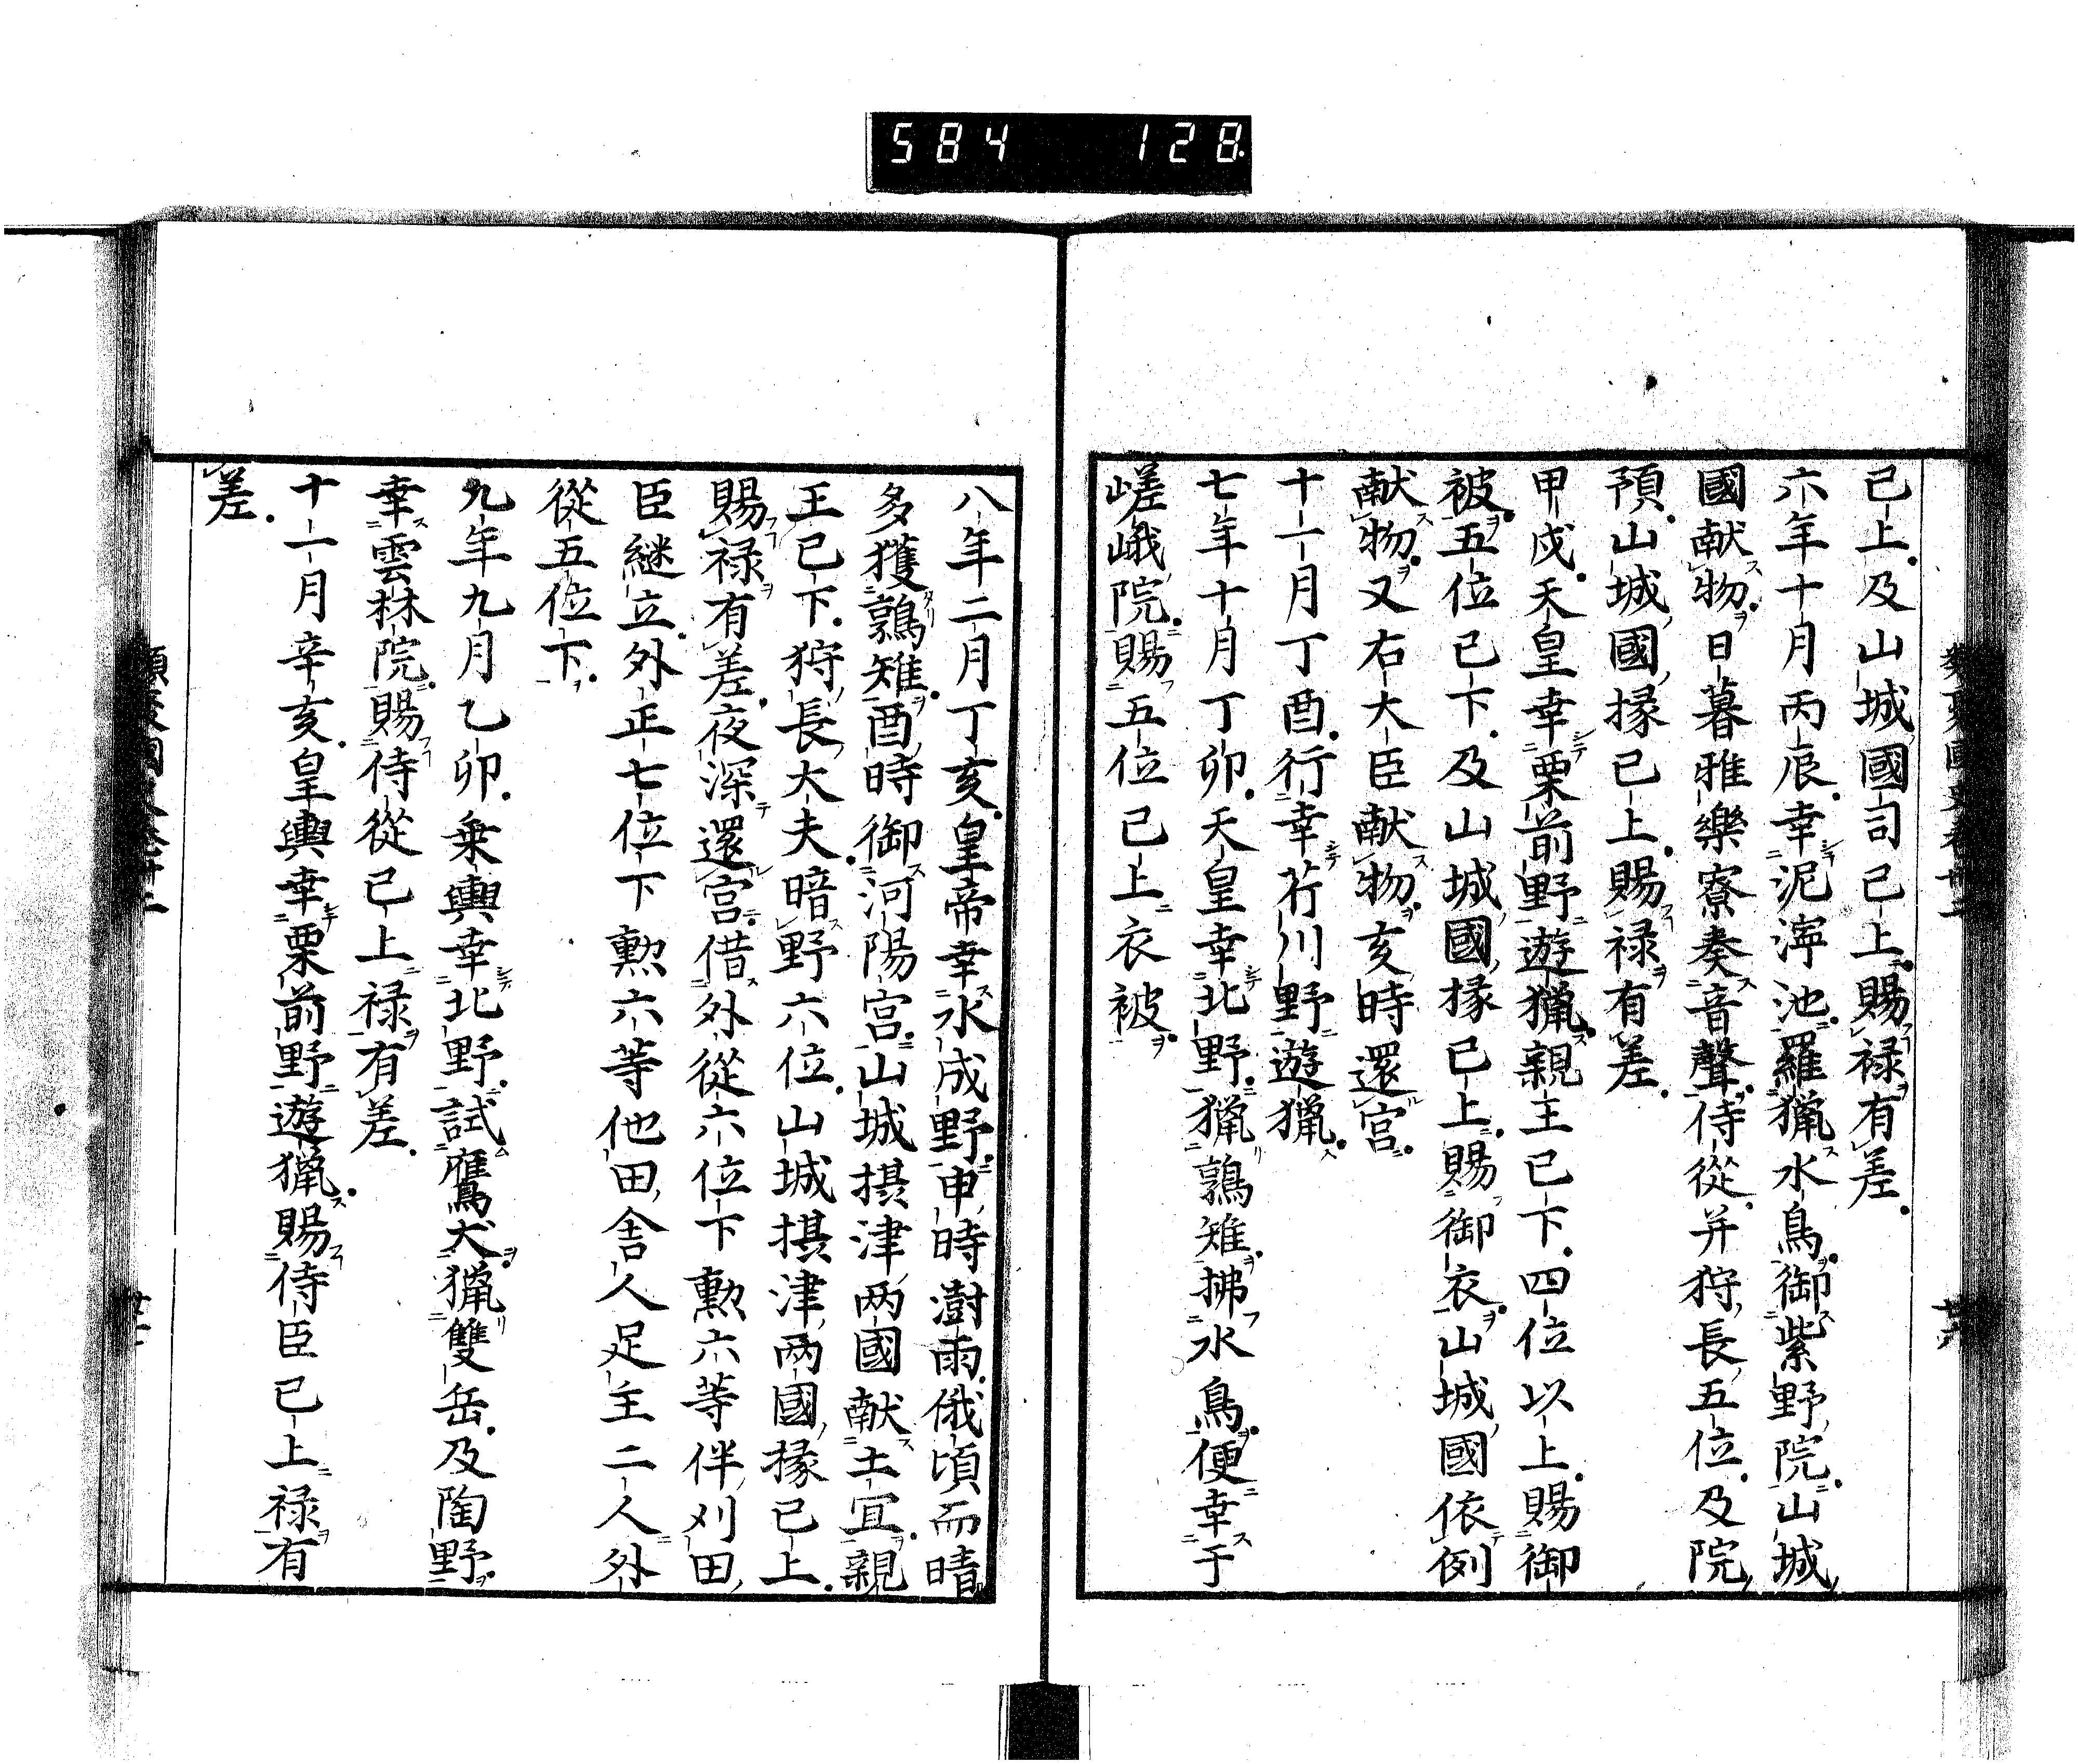 584 128
已上及山城國司已上賜禄有差
六年十月丙辰幸泥濘池羅獵水鳥御紫野院山城
國献物日暮雅樂寮奏音聲侍從并狩長五位及院
預山城國掾已上賜禄有差
甲戌天皇幸栗前野遊獵親王已下四位以上賜御
被五位已下及山城國掾已上賜御衣山城國依例
献物又右大臣献物亥時還宮
十一月丁酉行幸芹川野遊獵
七年十月丁卯天皇幸北野獵鶉雉拂水鳥便幸于
嵯峨院賜五位已上衣被
八年二月丁亥皇帝幸水成野申時澍雨俄頃而晴
多獲鶉雉酉時御河陽宮山城摂津兩國献土宜親
王已下狩長大夫暗野六位山城摂津兩國掾已上
賜禄有差夜深還宮借外從六位下勲六等伴刈田
臣継立外正七位下勲六等他田舎人足主二人外
從五位下
九年九月乙卯乗輿幸北野試鷹犬獵雙岳及陶野
幸雲林院賜侍從已上禄有差
十一月辛亥皇輿幸栗前野遊獵賜侍臣已上禄有
差